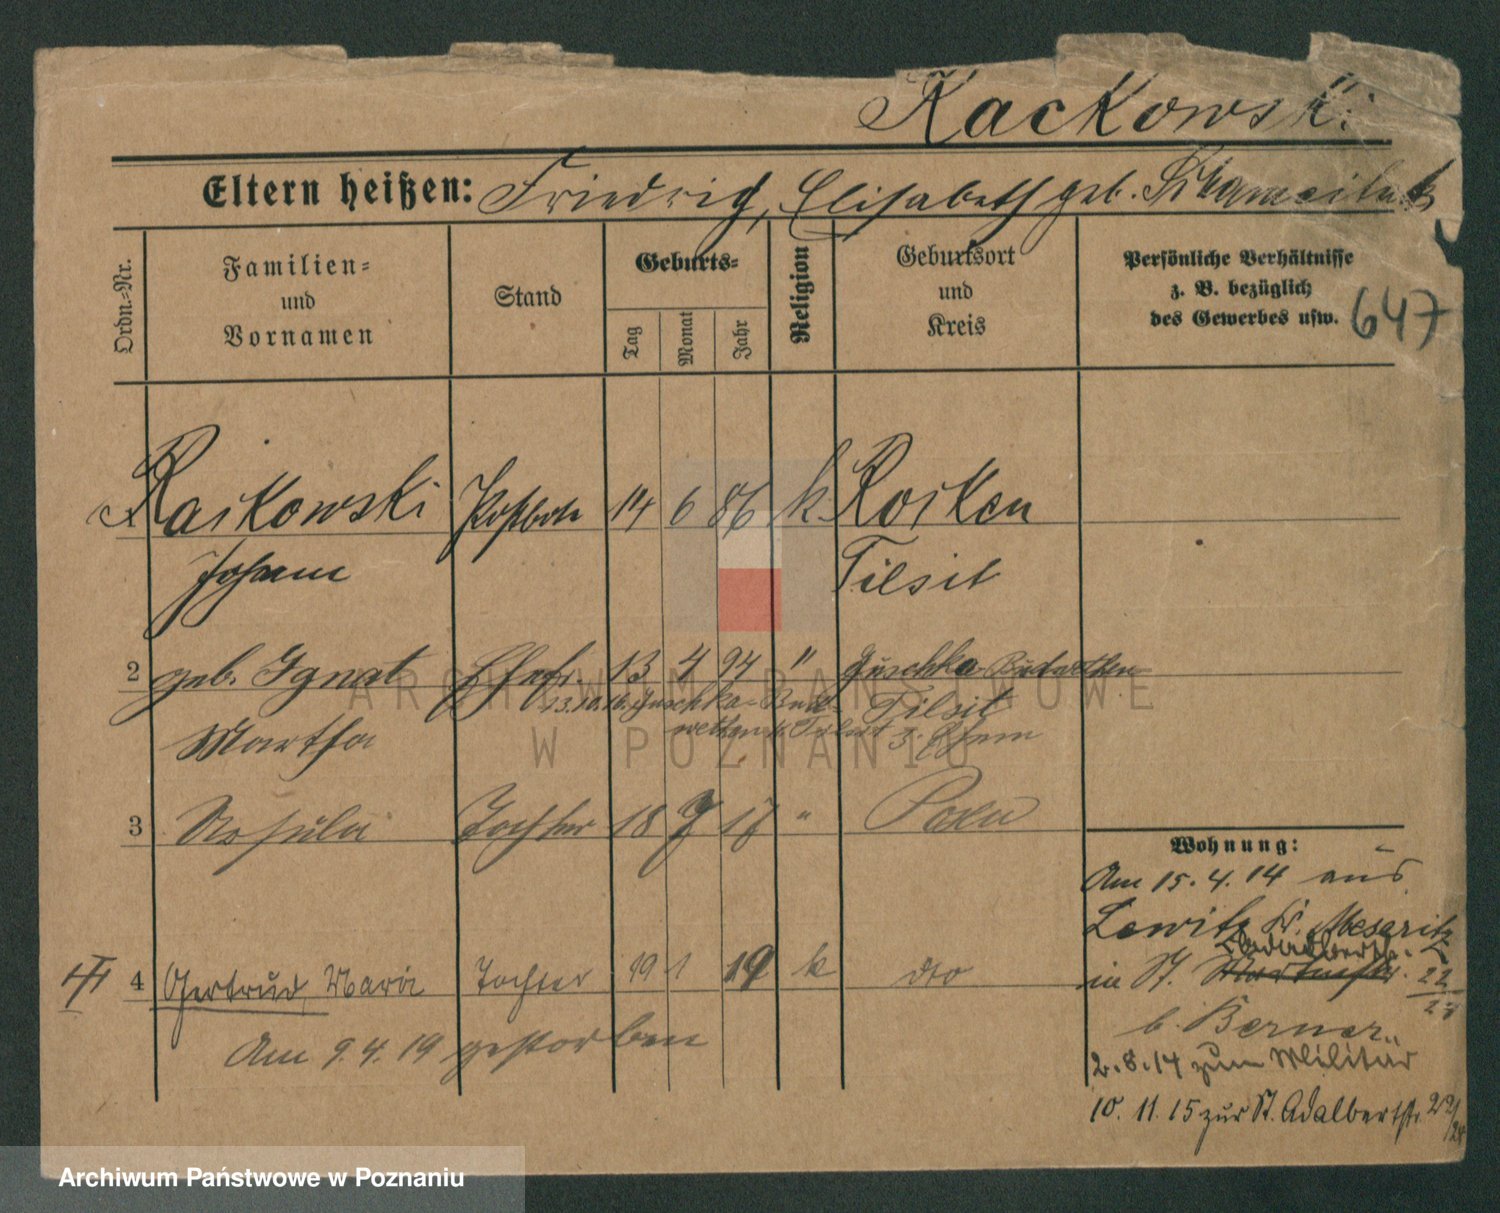 Rackowski
Eltern heißen: Friedrich, Elisabeth geb.
Ordn.-Nr.
Familien- und Vornamen
Stand
Geburts-
Tag
Monat
Jahr
Religion
Geburtsort und Kreis
Persönliche Verhältnisse
z. B. bezüglich
des Gewerbes usw.
647
1 Raikowski Postbote 14 6 86 k. Koiken
Johann Tilsit
2 geb. Ignat Ehefr. 13 4 94 " Juschka-Budwethen
13.10.16. Juschka-Bud- Tilsit
Martha wethen k. Tilsit z. Ehem
3 Ursula Tochter 18 7 17 " Posen
Wohnung:
Am 15.4.14 aus
Lewitz Kr. Meseritz
Adalbertstr.
in St. Martinstr. 22/28
4 Gertrud, Maria Tochter 19 1 19 k dto
b. Berner
Am 9.4.19 gestorben
2.8.14 zum Militär
10.11.15 zur St. Adalbertstr. 22/28
ARCHIWUM PAŃSTWOWE
W POZNANIU
Archiwum Państwowe w Poznaniu